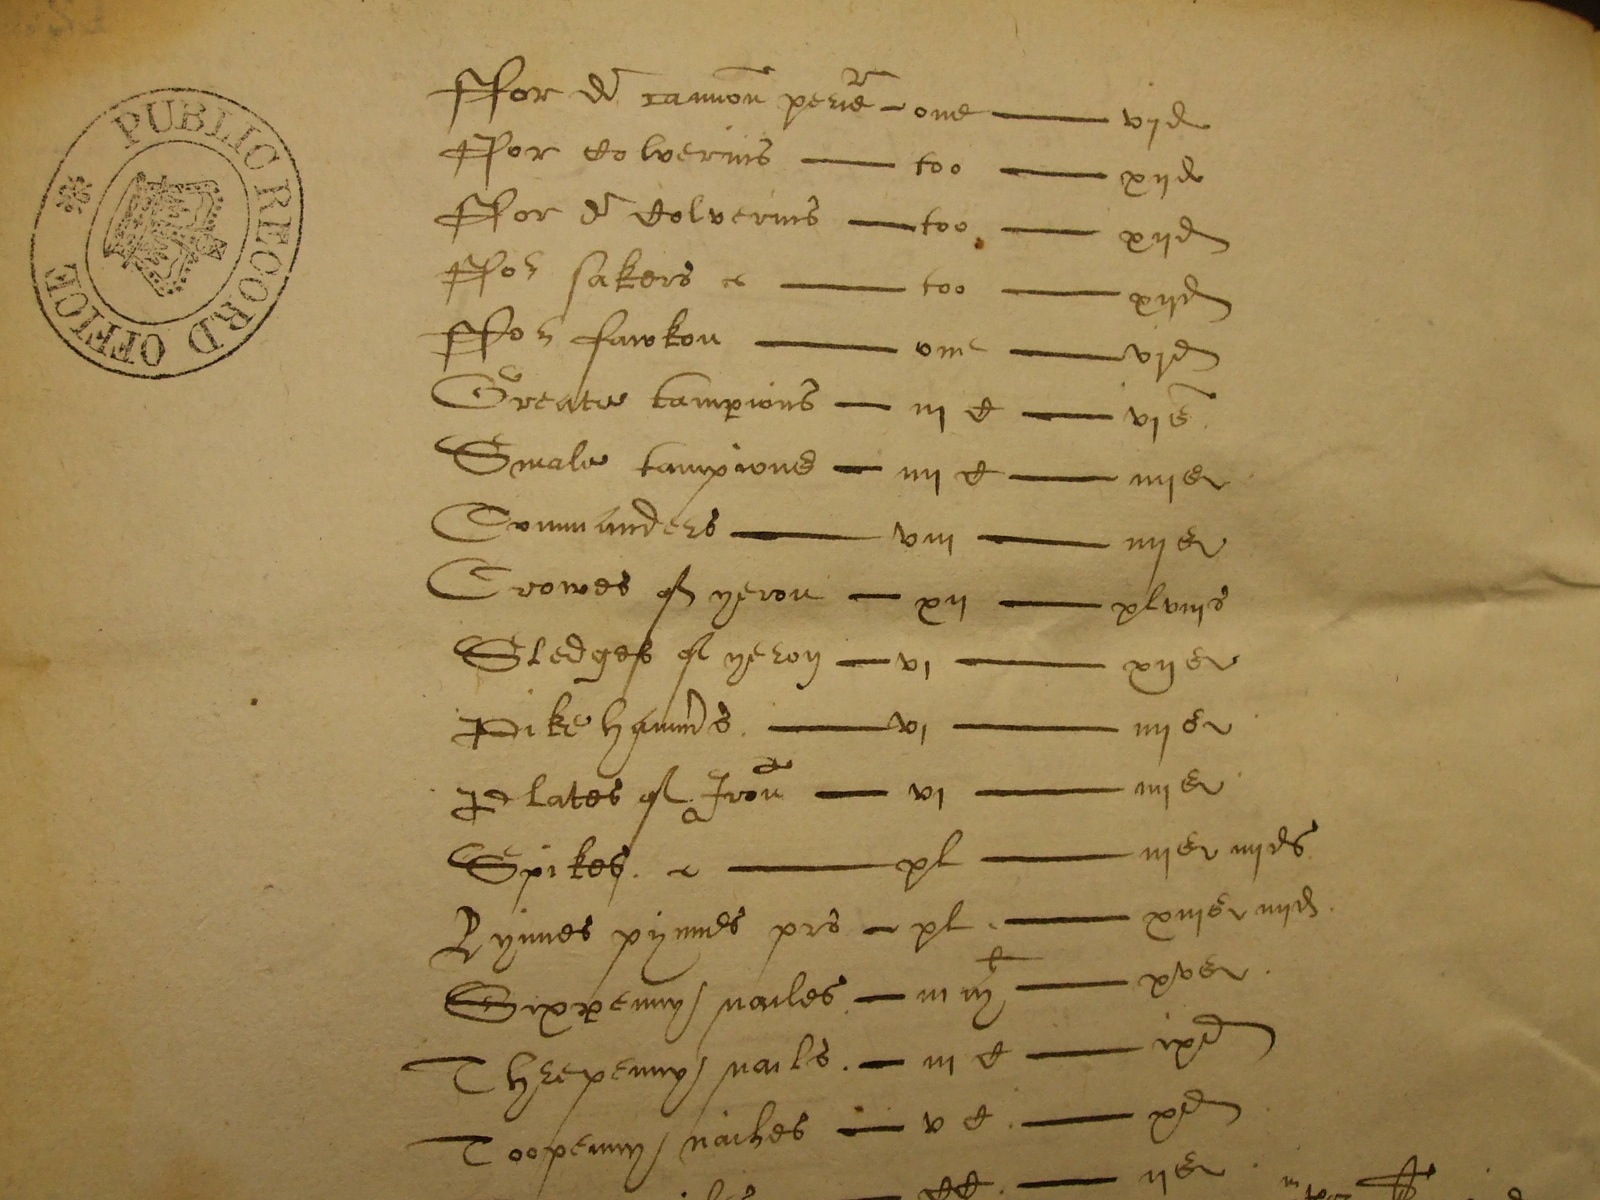 PUBLIC RECORD OFFICE
ffor dī cannon perer one vjd
ffor Colverins too xijd
ffor dī Colverins too xijd
ffor sakers too xijd
ffor fawkon one vjd
Greate tampions iij C vis
Smale tampions iiij C iiijs
Commanders viij iiijs
Crowes of yeron xij xlviijs
Sledges of yeron vj xijs
Pike hammrs vj iiijs
Plates of Iron vj iiijs
Spikes xl iijs iiijd
Lynnes pynnes prs xl xiijs iiijd
Sixpenny nailes xvs
Threpenny nails iij C ixd
Toopenny nailes v C xd
ijs